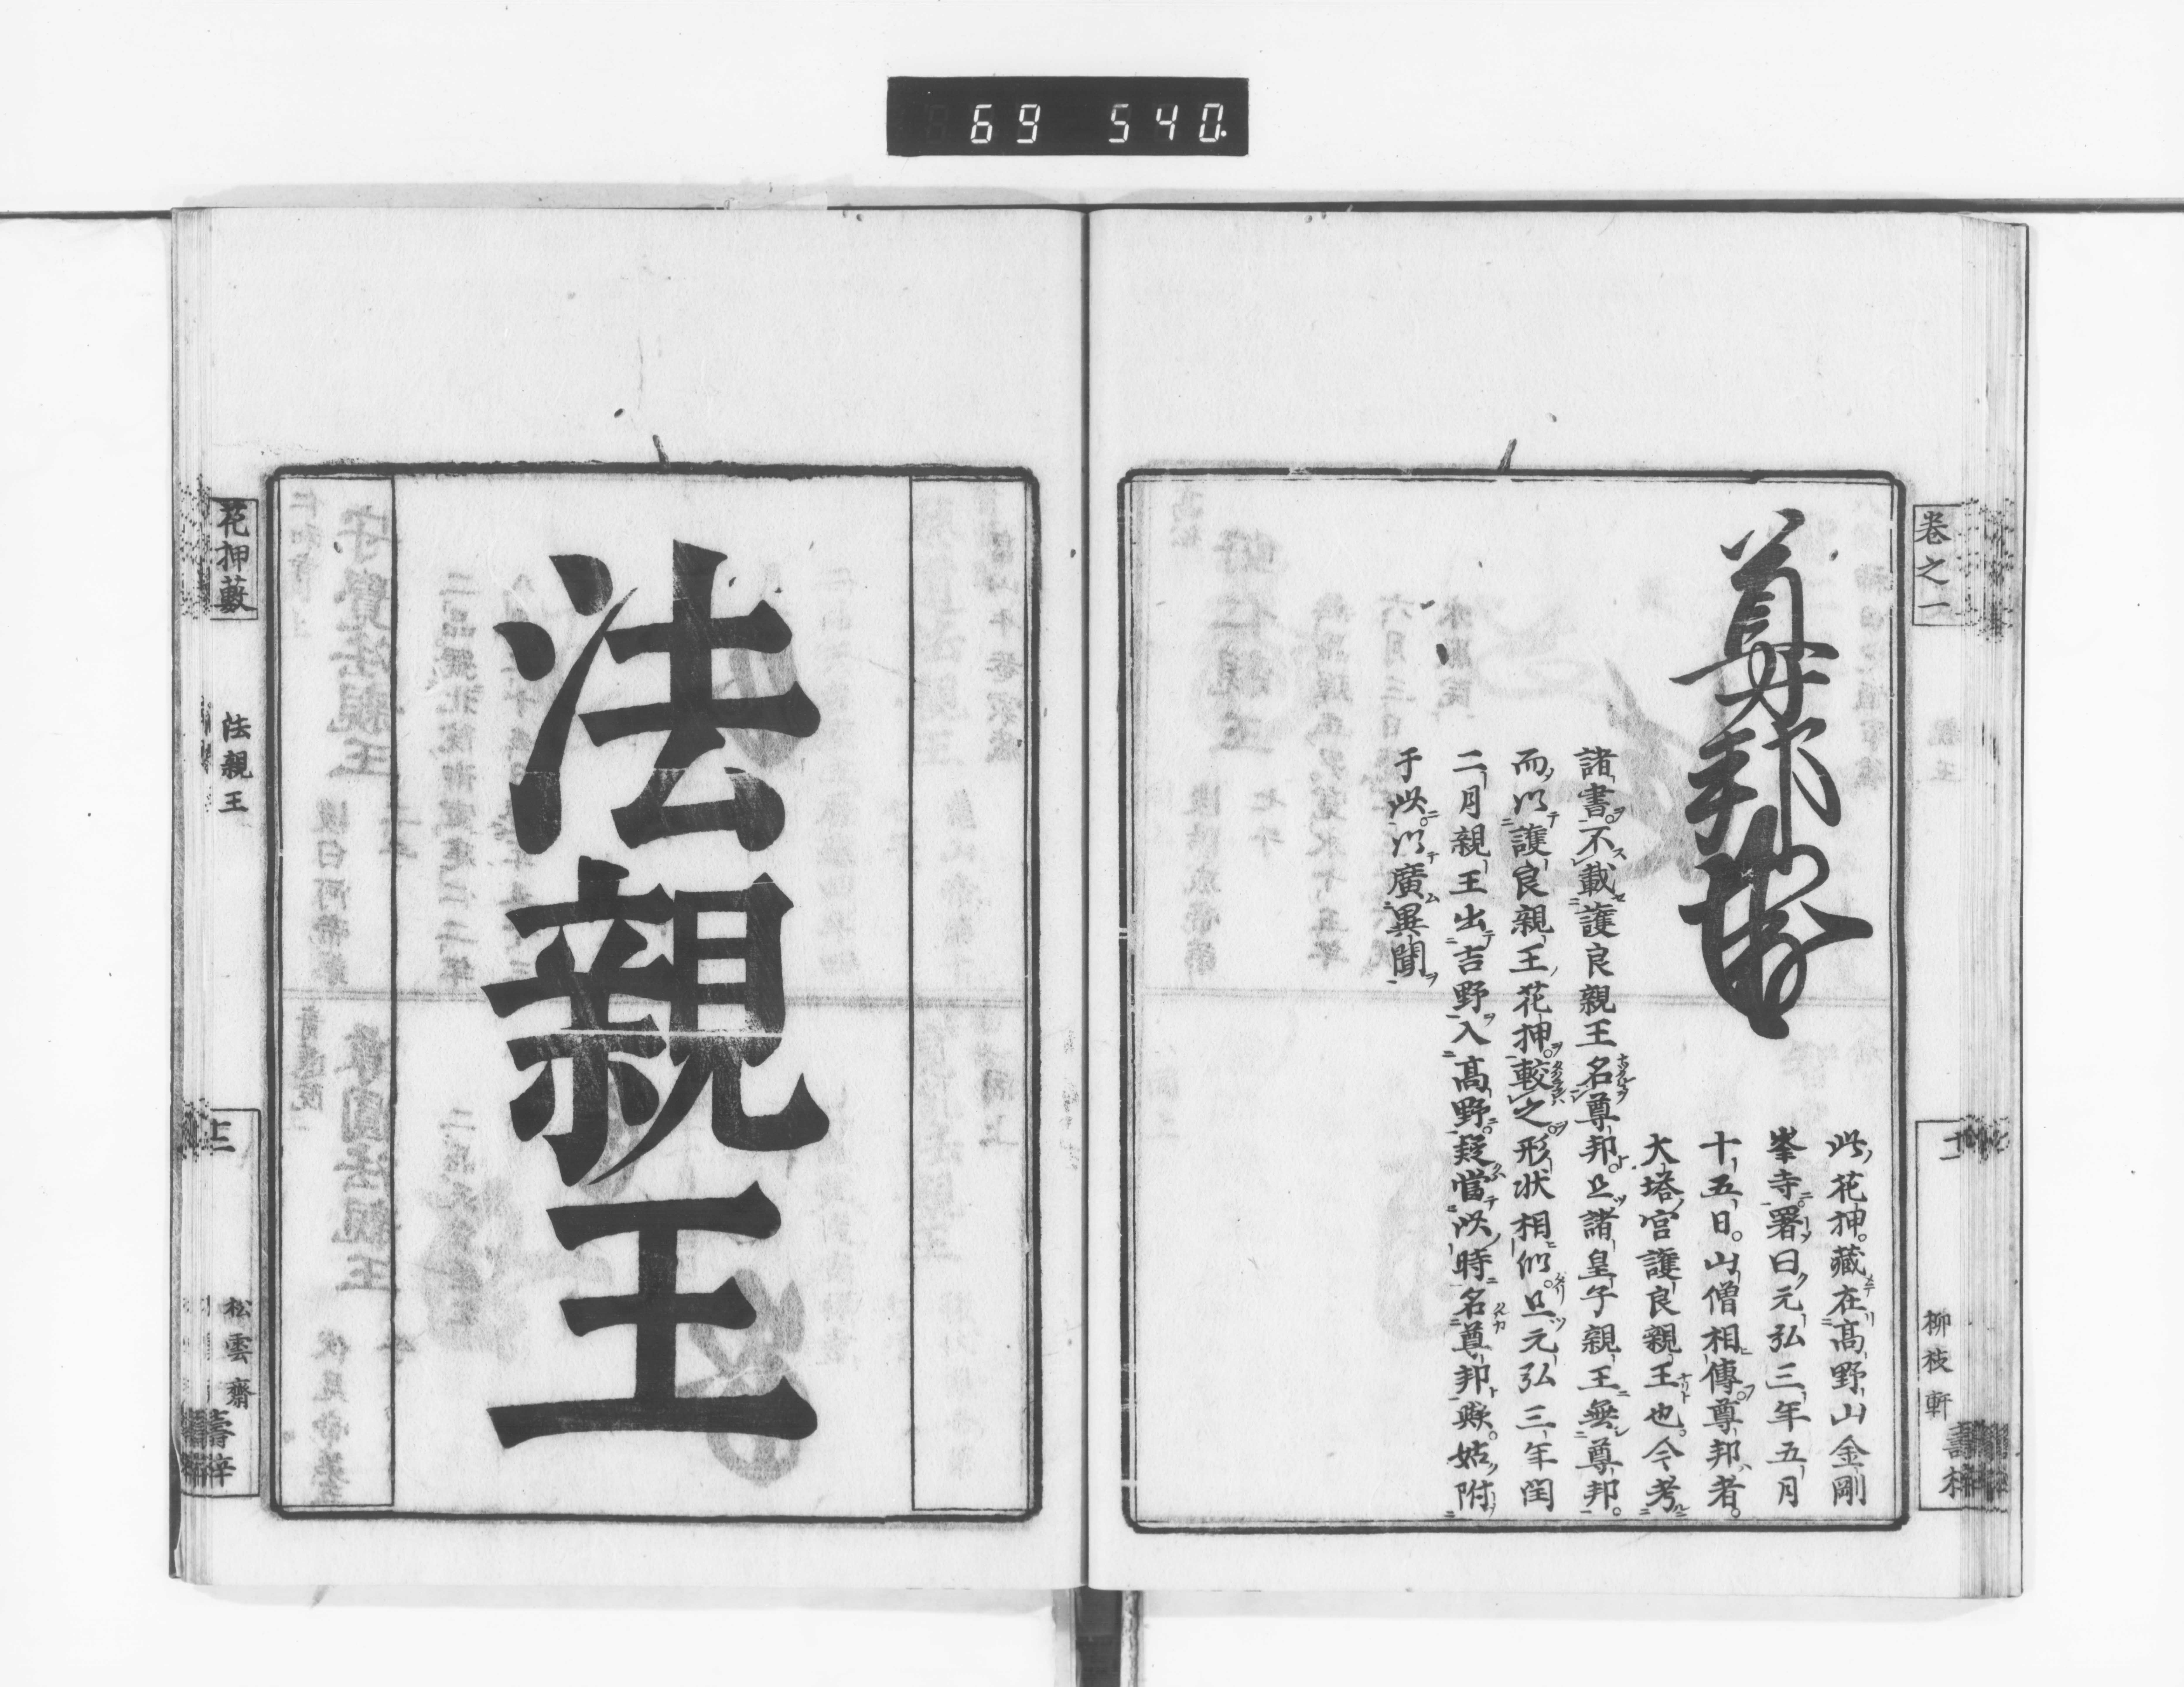 69 540.
卷之一
十一
柳枝軒
壽梓
尊邦
此花押藏在高野山金剛
峯寺署曰元弘三年五月
十五日山僧相傳尊邦者
大塔宮護良親王也今考
諸書不載護良親王名尊邦且諸皇子親王無尊邦
而以護良親王花押較之形状相似且元弘三年閏
二月親王出吉野入高野疑當此時名尊邦歟姑附
于此以廣異聞
法親王
花押藪
法親王
松雲齋
壽梓